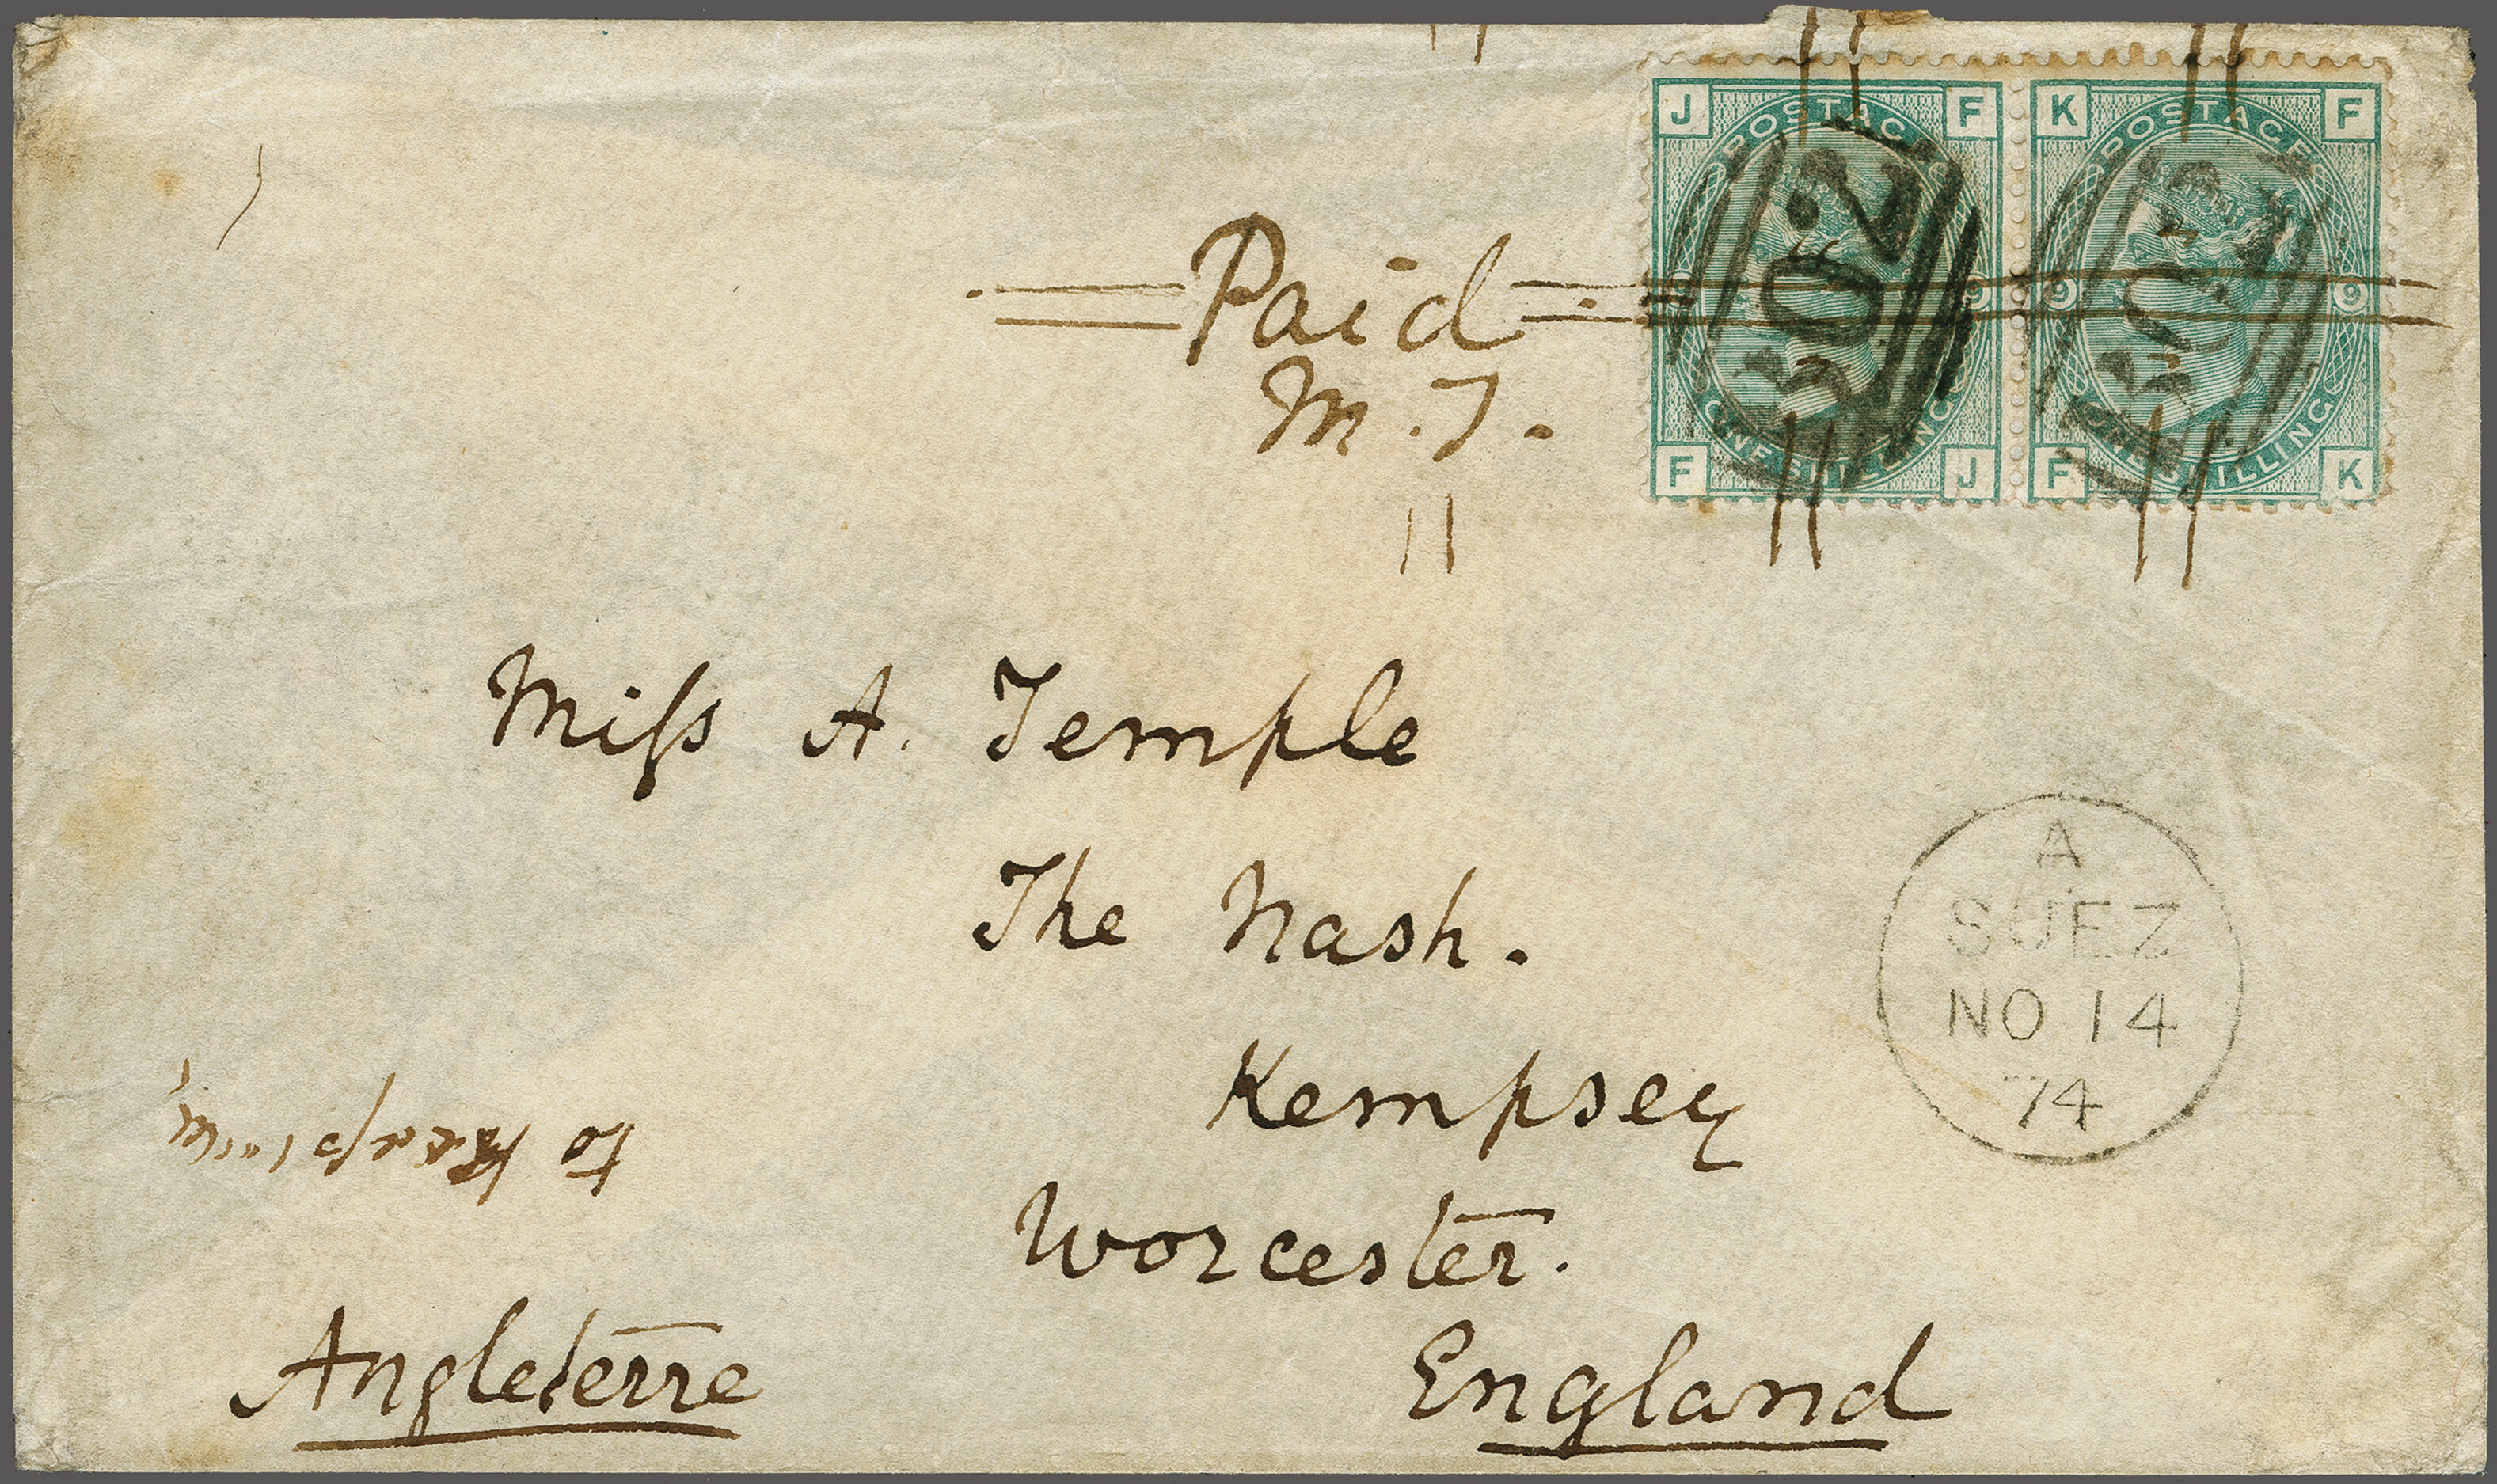 J F K F
POSTAGE POSTAGE
B02 B02
9 9 9 9
ONE SHILLING ONE SHILLING
F J F K
Paid
M.T.
Miſs A. Temple
The Nash.
Kempsey
Worcester.
England
Angleterre
A
SUEZ
NO 14
74
to